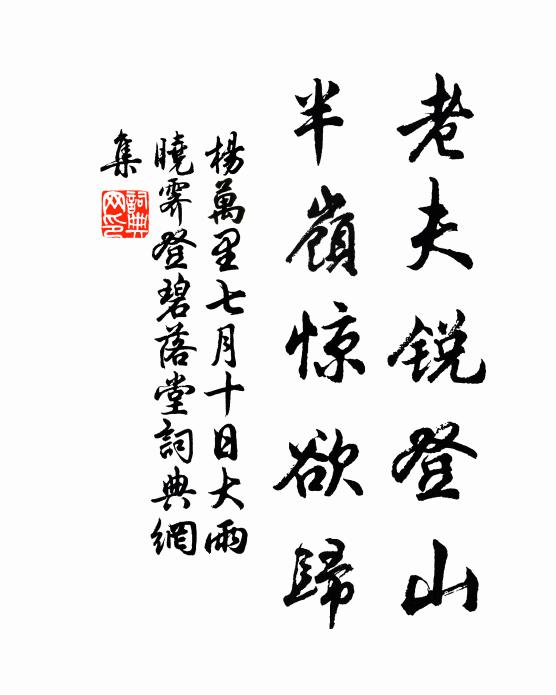 老夫锐登山
半嶺惊欲歸
楊萬里七月十日大雨
曉霽登碧落堂詞典網
集
詞典
网印